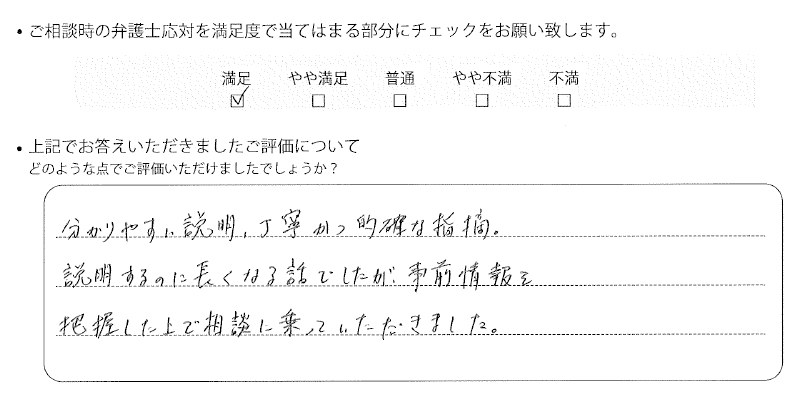 ・ご相談時の弁護士応対を満足度で当てはまる部分にチェックをお願い致します。
満足 やや満足 普通 やや不満 不満
☑ ☐ ☐ ☐ ☐
・上記でお答えいただきましたご評価について
どのような点でご評価いただけましたでしょうか？
分かりやすい説明、丁寧かつ的確な指摘。
説明するのに長くなる話でしたが、事前情報を
把握した上で相談に乗っていただきました。